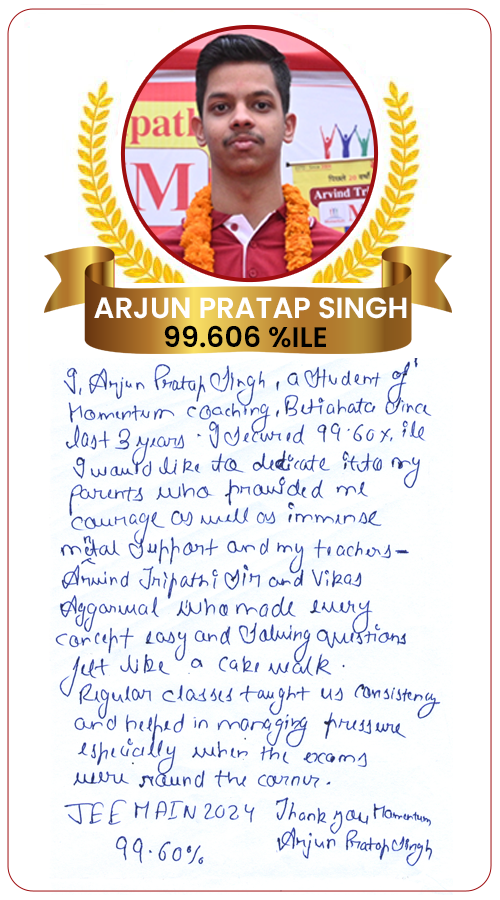 path
M
पिछले 25 वर्षों
Arvind Tri
ARJUN PRATAP SINGH
99.606 %ILE
I, Arjun Pratap Singh, a Student of
Momentum coaching, Betiahata Since
last 3 years. I Secured 99.60%ile
I would like to dedicate it to my
parents who provided me
courage as well as immense
mental Support and my teachers-
Arvind Tripathi Sir and Vikas
Aggarwal who made every
concept easy and Solving questions
felt like a cake walk.
Regular classes taught us consistency
and helped in managing pressure
especially when the exams
were round the corner.
JEE MAIN 2024 Thank you Momentum
99.60% Arjun Pratap Singh